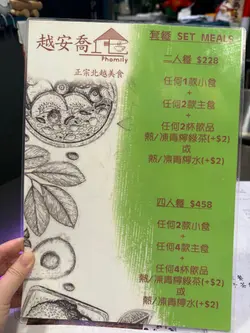 越安喬
Phamily
正宗北越美食
套餐 SET MEALS
二人餐 $228
任何1款小食
+
任何2款主食
+
任何2杯飲品
熱/凍青檸綠茶(+$2)
或
熱/凍青檸水(+$2)
四人餐 $458
任何2款小食
+
任何4款主食
+
任何4杯飲品
熱/凍青檸綠茶(+$2)
或
熱/凍青檸水(+$2)